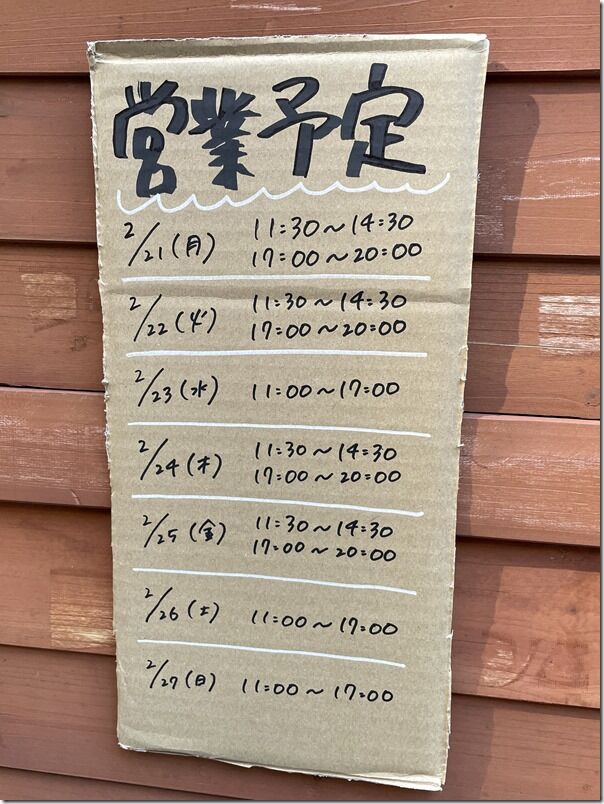 営業予定
2/21(月) 11:30〜14:30
17:00〜20:00
2/22(火) 11:30〜14:30
17:00〜20:00
2/23(水) 11:00〜17:00
2/24(木) 11:30〜14:30
17:00〜20:00
2/25(金) 11:30〜14:30
17:00〜20:00
2/26(土) 11:00〜17:00
2/27(日) 11:00〜17:00